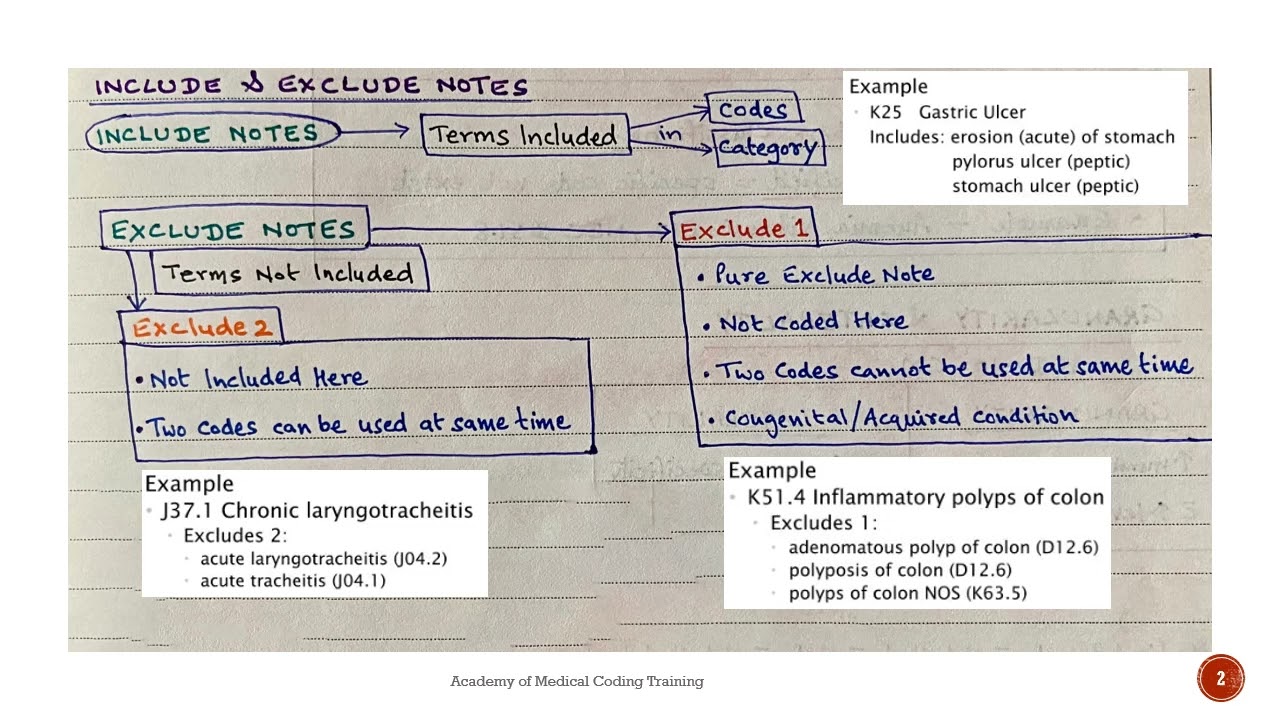 INCLUDE & EXCLUDE NOTES
INCLUDE NOTES
Terms Included
in
Codes
Category
Example
K25 Gastric Ulcer
Includes: erosion (acute) of stomach
pylorus ulcer (peptic)
stomach ulcer (peptic)
EXCLUDE NOTES
Terms Not Included
Exclude 1
• Pure Exclude Note
• Not Coded Here
• Two Codes cannot be used at same time
• Congenital/Acquired condition
Exclude 2
• Not Included Here
• Two codes can be used at same time
Example
J37.1 Chronic laryngotracheitis
Excludes 2:
acute laryngotracheitis (J04.2)
acute tracheitis (J04.1)
Example
K51.4 Inflammatory polyps of colon
Excludes 1:
adenomatous polyp of colon (D12.6)
polyposis of colon (D12.6)
polyps of colon NOS (K63.5)
Academy of Medical Coding Training
2